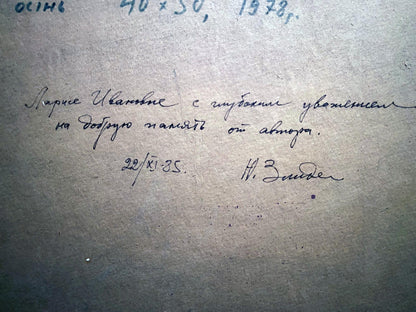 осінь 40 × 50, 1978 г.
Ларисе Ивановне с глубоким уважением
на добрую память от автора.
22/XI-85. Н.